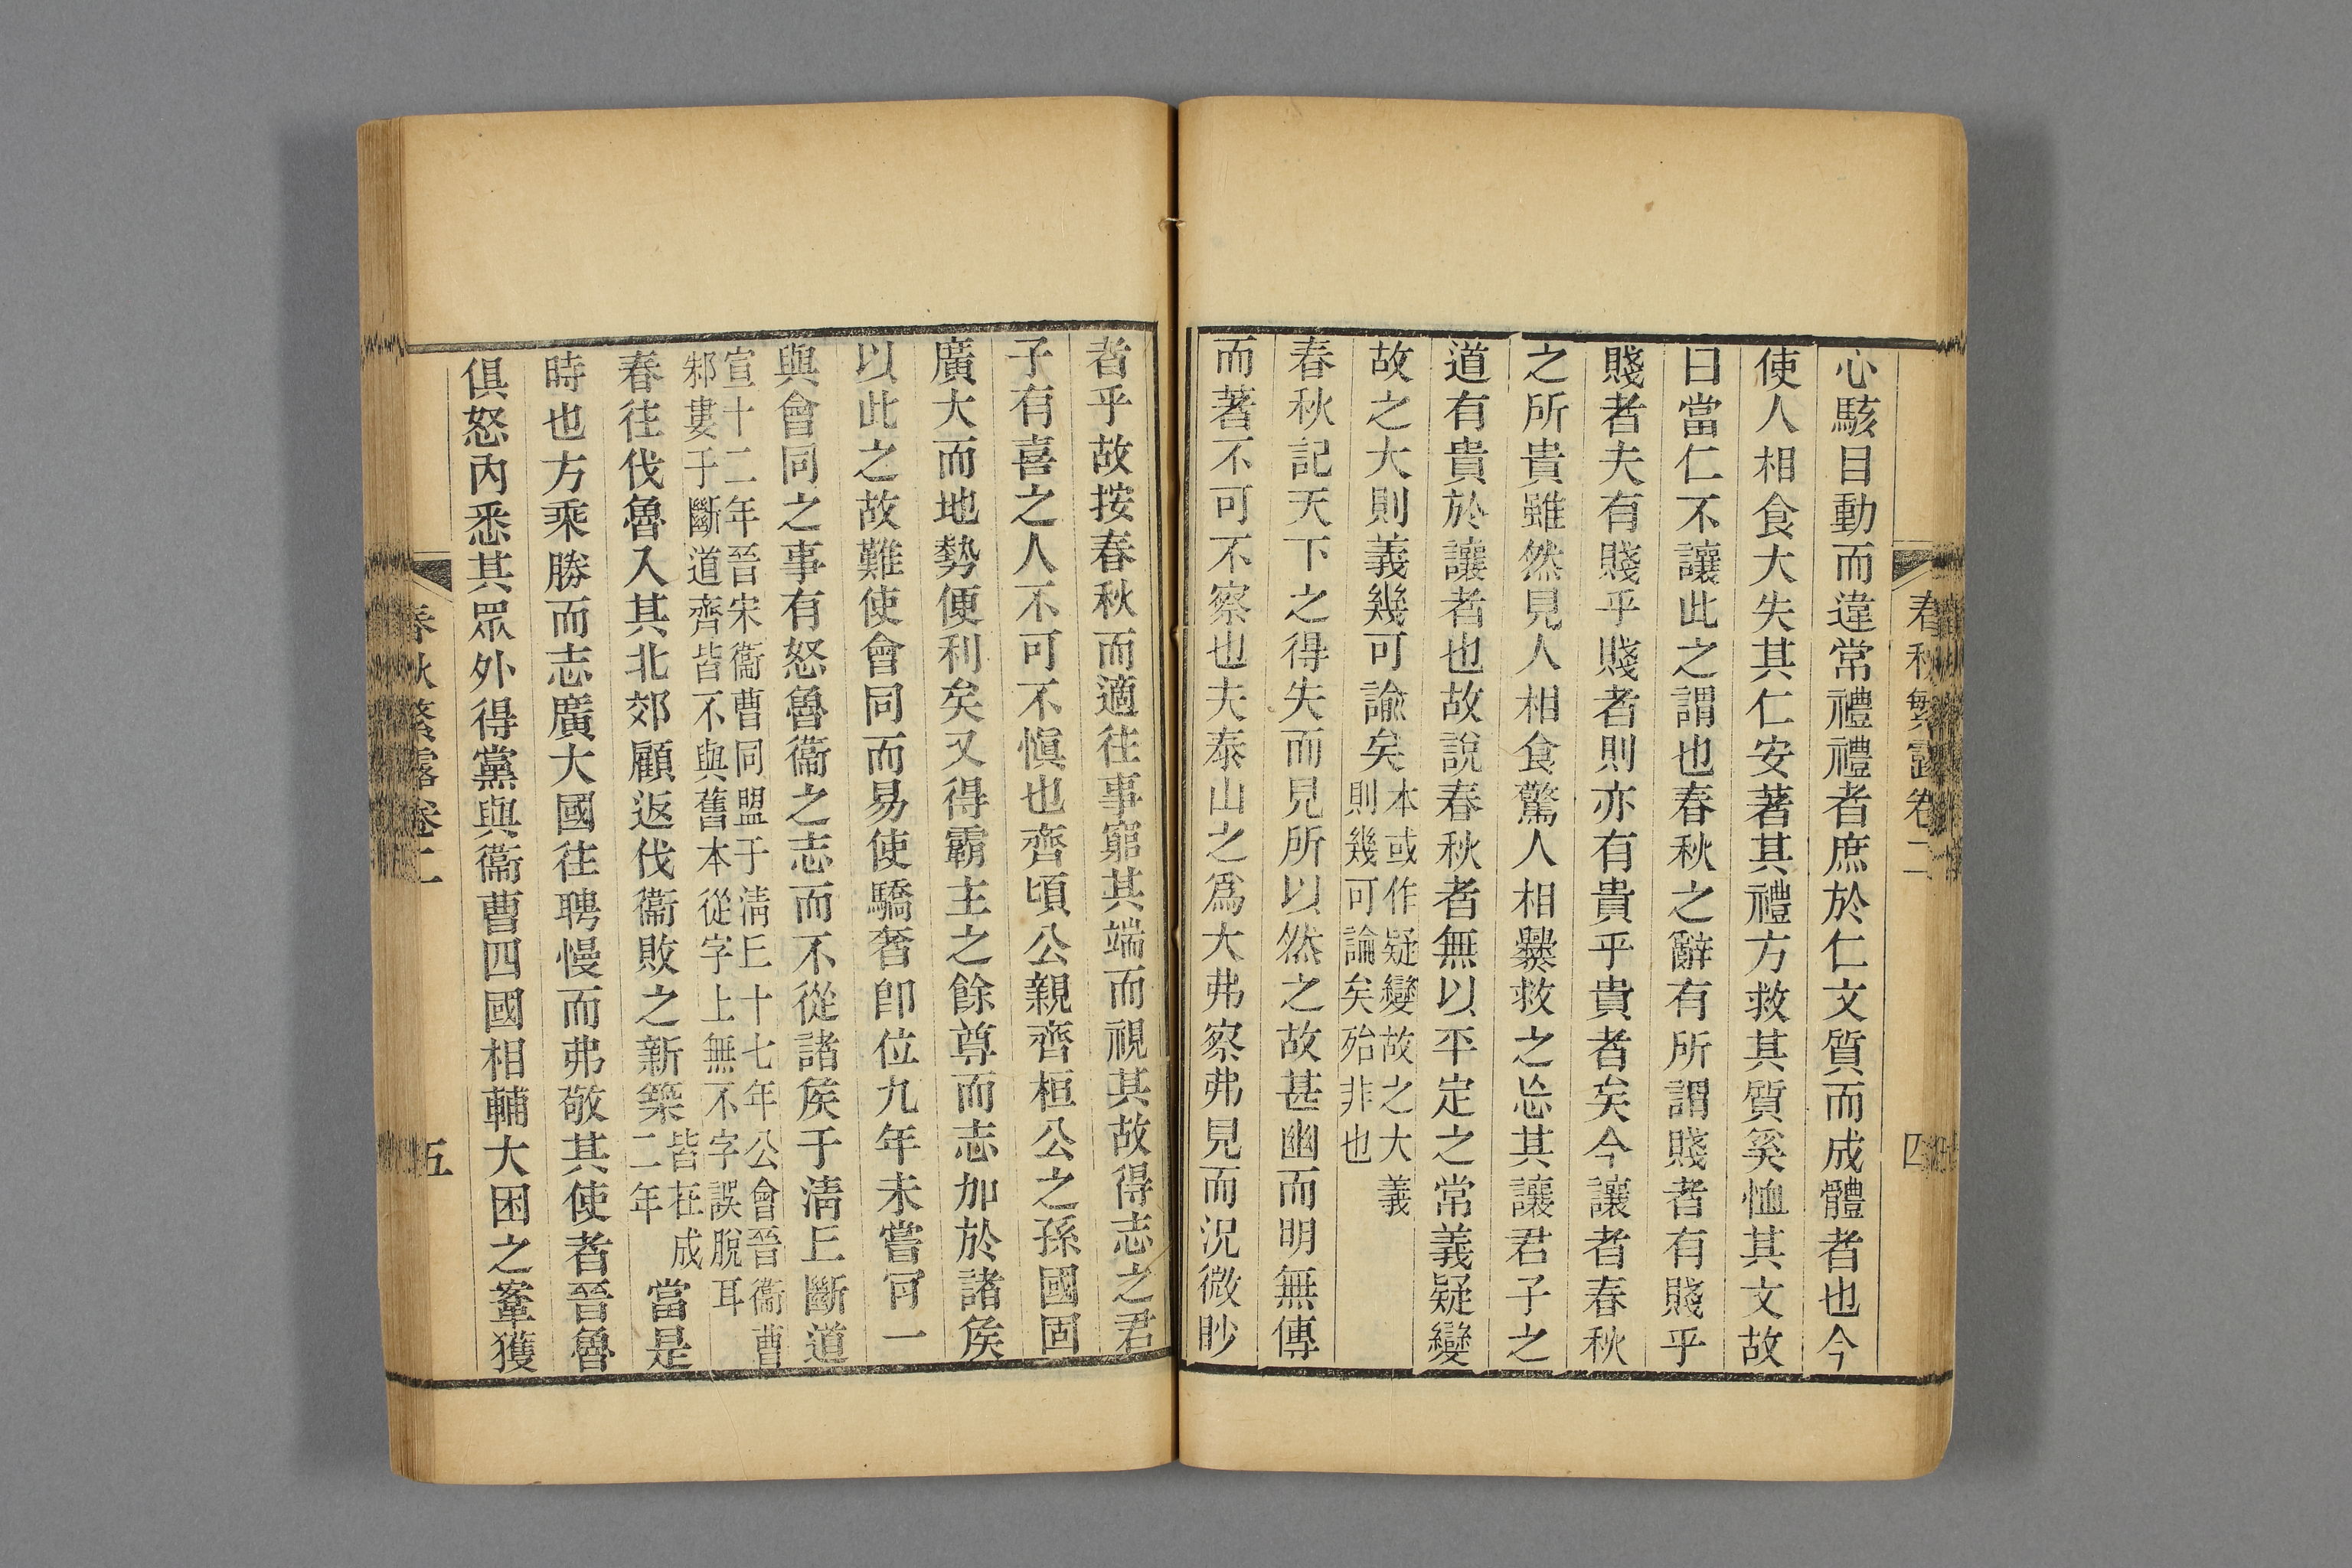 春秋繁露卷二
四
心駭目動而違常禮禮者庶於仁文質而成體者也今
使人相食大失其仁安著其禮方救其質奚恤其文故
曰當仁不讓此之謂也春秋之辭有所謂賤者有賤乎
賤者夫有賤乎賤者則亦有貴乎貴者矣今讓者春秋
之所貴雖然見人相食驚人相爨救之忘其讓君子之
道有貴於讓者也故說春秋者無以平定之常義疑變
故之大則義幾可諭矣
本或作疑變故之大義
則幾可論矣殆非也
春秋記天下之得失而見所以然之故甚幽而明無傳
而著不可不察也夫泰山之爲大弗察弗見而況微眇
者乎故按春秋而適往事窮其端而視其故得志之君
子有喜之人不可不愼也齊頃公親齊桓公之孫國固
廣大而地勢便利矣又得霸主之餘尊而志加於諸矦
以此之故難使會同而易使驕奢卽位九年未嘗肎一
與會同之事有怒魯衞之志而不從諸矦于淸𠀉斷道
宣十二年晉宋衞曹同盟于淸𠀉十七年公會晉衞曹
邾婁于斷道齊皆不與舊本從字上無不字誤脫耳
春往伐魯入其北郊顧返伐衞敗之新築
皆在成
二年
當是
時也方乘勝而志廣大國往聘慢而弗敬其使者晉魯
俱怒內悉其眾外得黨與衞曹四國相輔大困之鞌獲
春秋繁露卷二
五